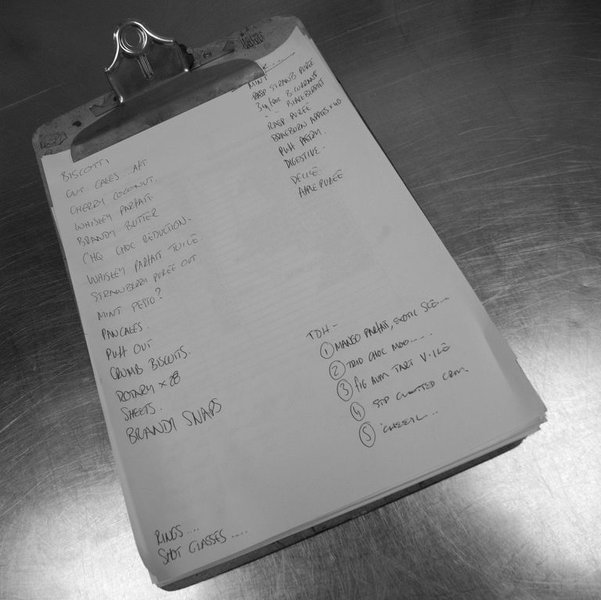 BISCOTTI
CUT CAGES
CHERRY COCONUT..
WHISKEY PARFAIT
BRANDY BUTTER
CHQ CHOC REDUCTION-
WHISKEY PARFAIT TUILE
STRAWBERRY PUREE OUT
MINT PESTO?
PANCAKES
PUFF OUT
CRUMB BISCUITS.
ROTARY × 28
SHEETS..
BRANDY SNAPS
RINGS....
SHOT GLASSES ....
MINT
STRAWB PUREE
B. CURRANT
RASP PUREE
BRAEBURN APPLES × 40
PUFF PASTRY
DIGESTIVE-
DELICE
APPLE PUREE
TDH-
① MANGO PARFAIT, EXOTIC SCE...
② TRIO CHOC
③ FIG ALM TART V-ICE
④ STP CLOTTED CRM.
⑤